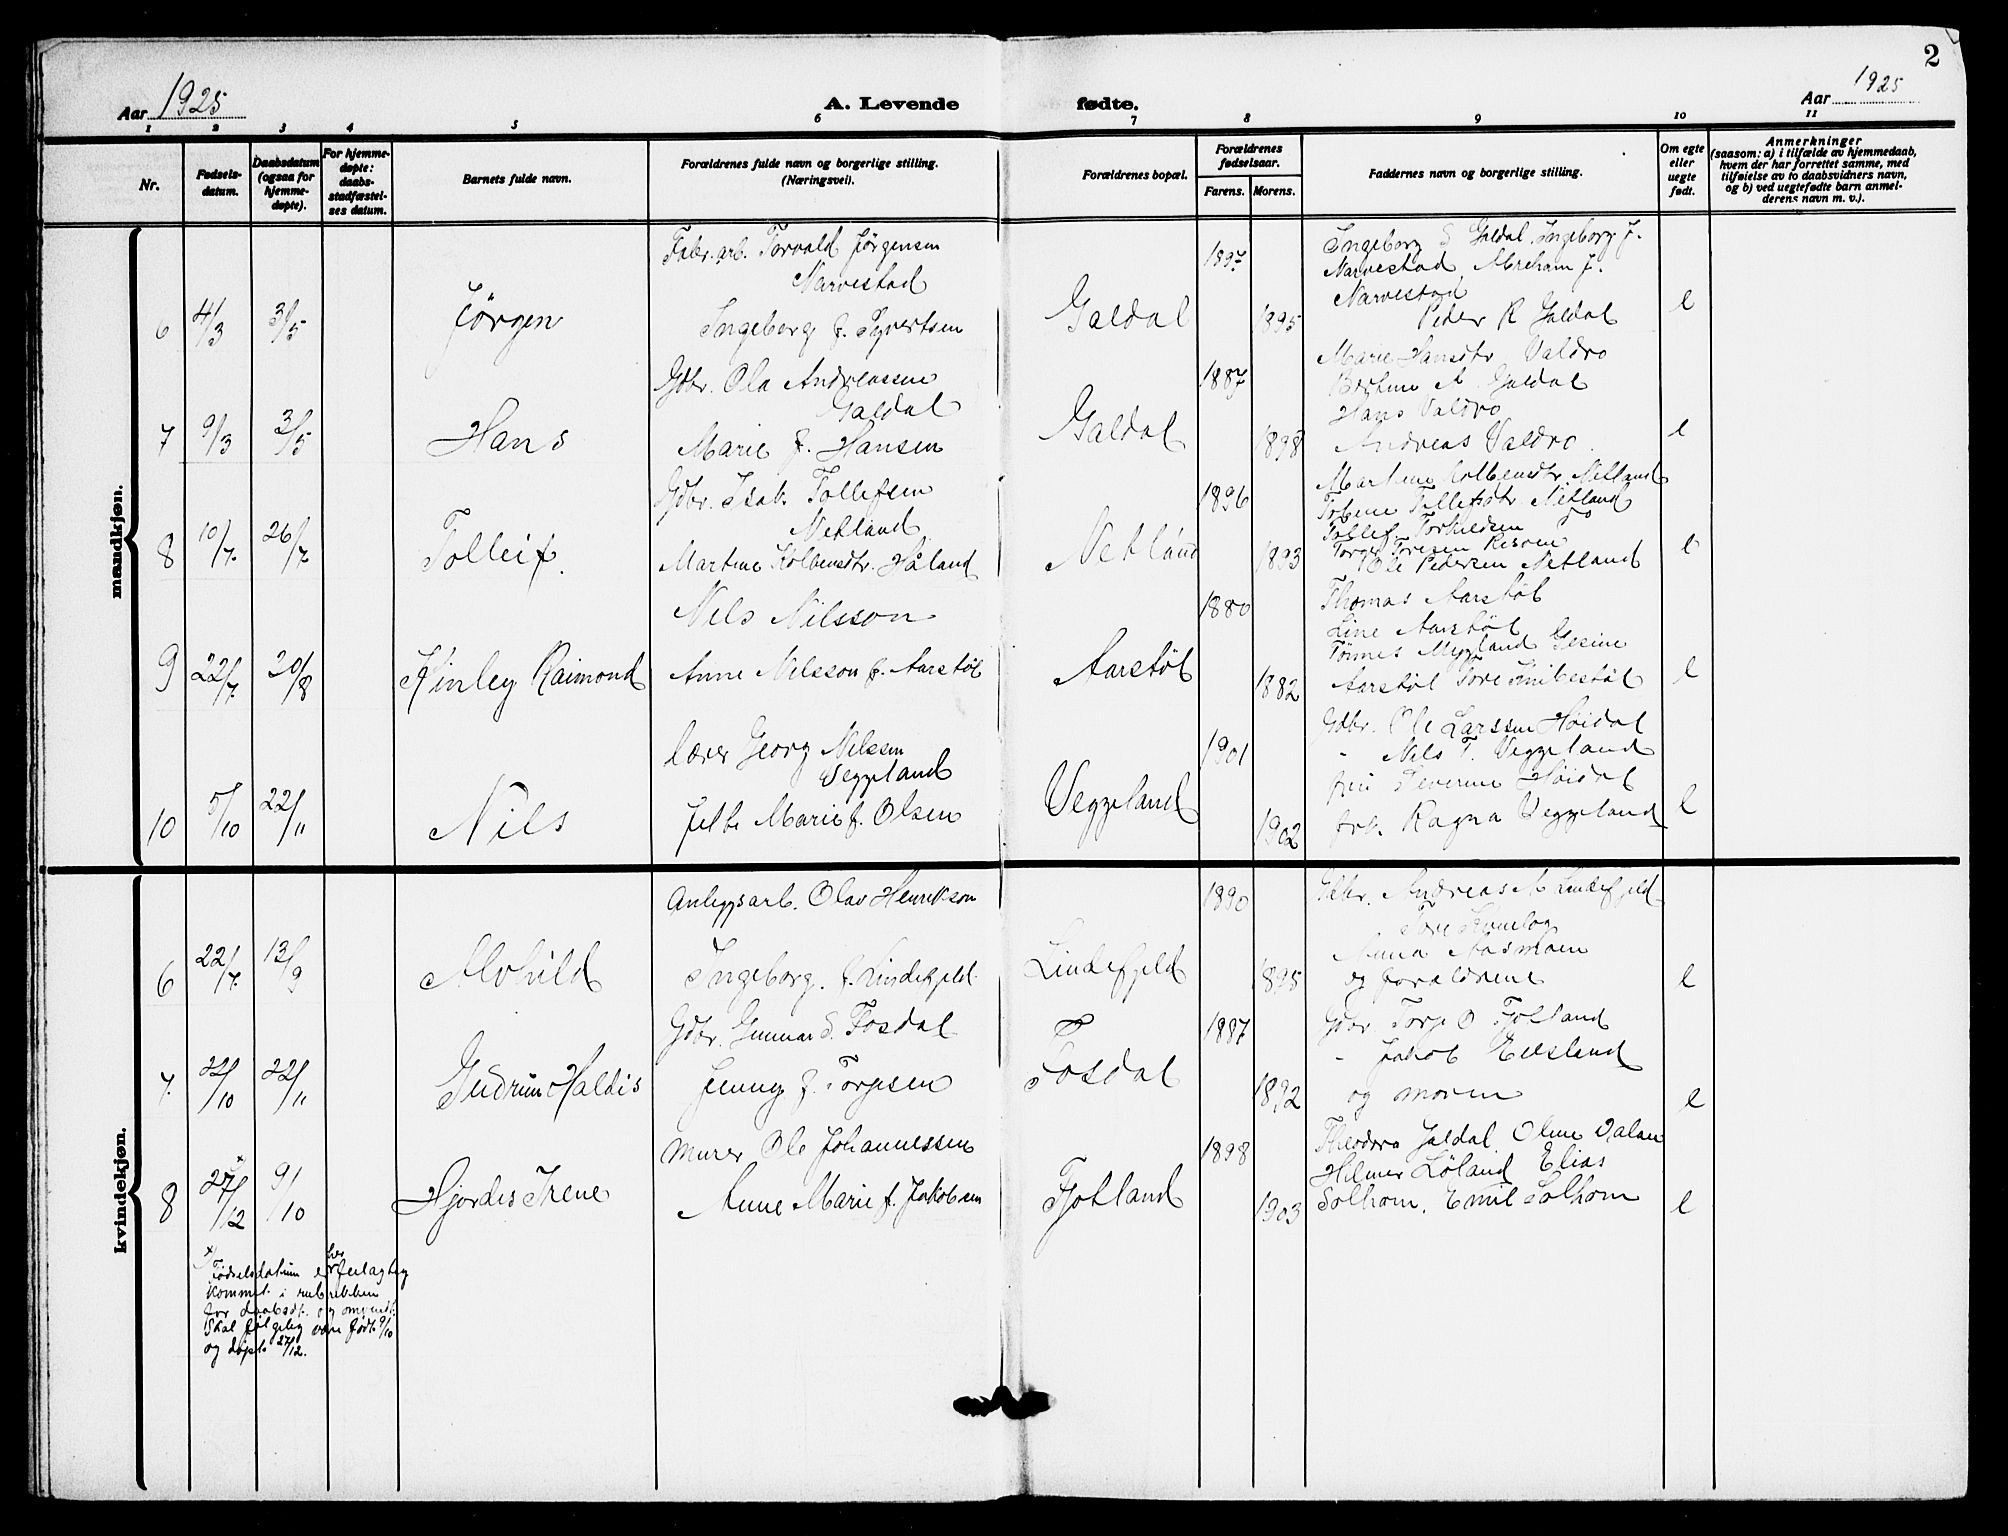 2
Aar 1925
A. Levende fødte.
Aar 1925
1 2 3 4 5 6 7 8 9 10 11
Nr.
Fødsels-
datum.
Daabsdatum
(ogsaa for
hjemme-
døpte).
For hjemme-
døpte:
daabs-
stadfæstel-
ses datum.
Barnets fulde navn.
Forældrenes fulde navn og borgerlige stilling.
(Næringsvei).
Forældrenes bopæl.
Forældrenes
fødselsaar.
Farens. Morens.
Faddernes navn og borgerlige stilling.
Om egte
eller
uegte
født.
Anmerkninger
(saasom: a) i tilfælde av hjemmedaab,
hvem der har forrettet samme, med
tilføielse av to daabsvidners navn,
og b) ved uegtefødte barn anmel-
derens navn m. v.).
mandkjøn.
6 4/3 3/5 Jørgen
Fabr. arb. Torvald Jørgensen
Narvestad
Ingeborg f. Syvertsen
Galdal
1897
1895
Ingeborg S Galdal, Ingeborg J.
Narvestad, Abreham J.
Narvestad
Peder R Galdal
e
7 9/3 3/5 Hans
Gdbr. Ola Andreassen
Galdal
Marie f. Hansen
Galdal
1887
1898
Marie Hansdtr Valdro
A. Galdal
Hans Valdro
Andreas Valdro.
e
8 10/7 26/7 Tolleif.
Gdbr. Isak Tollefsen
Netland
Martine Kolbensdtr. Håland
Netland
1896
1893
Martine Kolbensdtr. Netland
Tobine Tollefsdtr Netland
Tollef Torkildsen do
Torger Toresen Risven
Ole Pedersen Netland
e
9 22/7 30/8 Kinley Raimond
Nels Nilsson
Anne Nelsson f. Aarstøl
Aarstøl
1880
1882
Thomas Aarstøl
Line Aarstøl
Tønnes Mygland Gesine
Aarstøl Tore
e
10 5/10 22/11 Nils
Lærer Georg Nilssen
Veggeland
Marie f. Olsen
Veggeland
1901
1902
Gdbr. Ole Larssen Høidal
" Nils T. Veggeland
fru Severine Høidal
frk. Ragna Veggeland
e
kvindekjøn.
6 22/7 13/9 Alvhild
Anleggsarb. Olav Henrikson
Ingeborg. f. Lindefjeld.
Lindefjeld
1890
1895
Gdbr. Andreas A Lindefjeld
Tore
Anna Aasmoen
og forældrene
e
7. 22/10 22/11 Gudrun Haldis
Gdbr. Gunnar S. Fosdal
Jenny f. Torgsen
Fosdal
1887
1892
Gdbr Torg O Fjotland
" Jakob Eilsland
og moren
e
8 27/12 x 9/10 Hjørdis Irene
Murer Ole Johannessen
Anne Marie f. Jakobsen
Fjotland
1898
1903
Theodora Galdal, Oline Dalen
Hilmer Løland, Elias
Solhom, Emil Solhom
e
x Fødselsdatum er her feilagtig
kommet i rubrikken
for daabsdt. og omvendt.
Skal følgelig være født 9/10
og døpt 27/12.